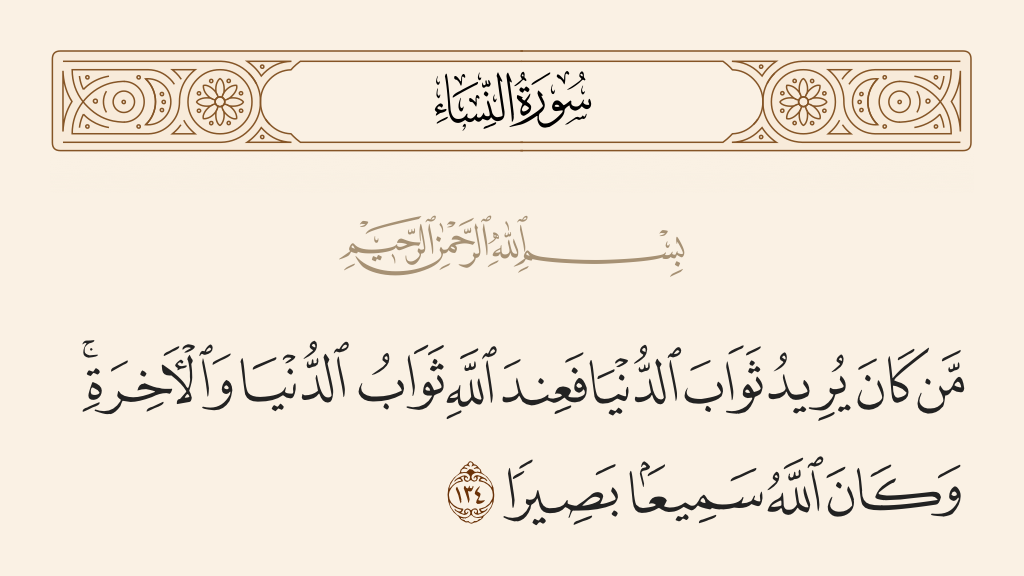 سُورَةُ النِّسَاءِ
بِسْمِ ٱللَّهِ ٱلرَّحْمَٰنِ ٱلرَّحِيمِ
مَّن كَانَ يُرِيدُ ثَوَابَ ٱلدُّنْيَا فَعِندَ ٱللَّهِ ثَوَابُ ٱلدُّنْيَا وَٱلْـَٔاخِرَةِ ۚ
وَكَانَ ٱللَّهُ سَمِيعًۢا بَصِيرًا ١٣٤